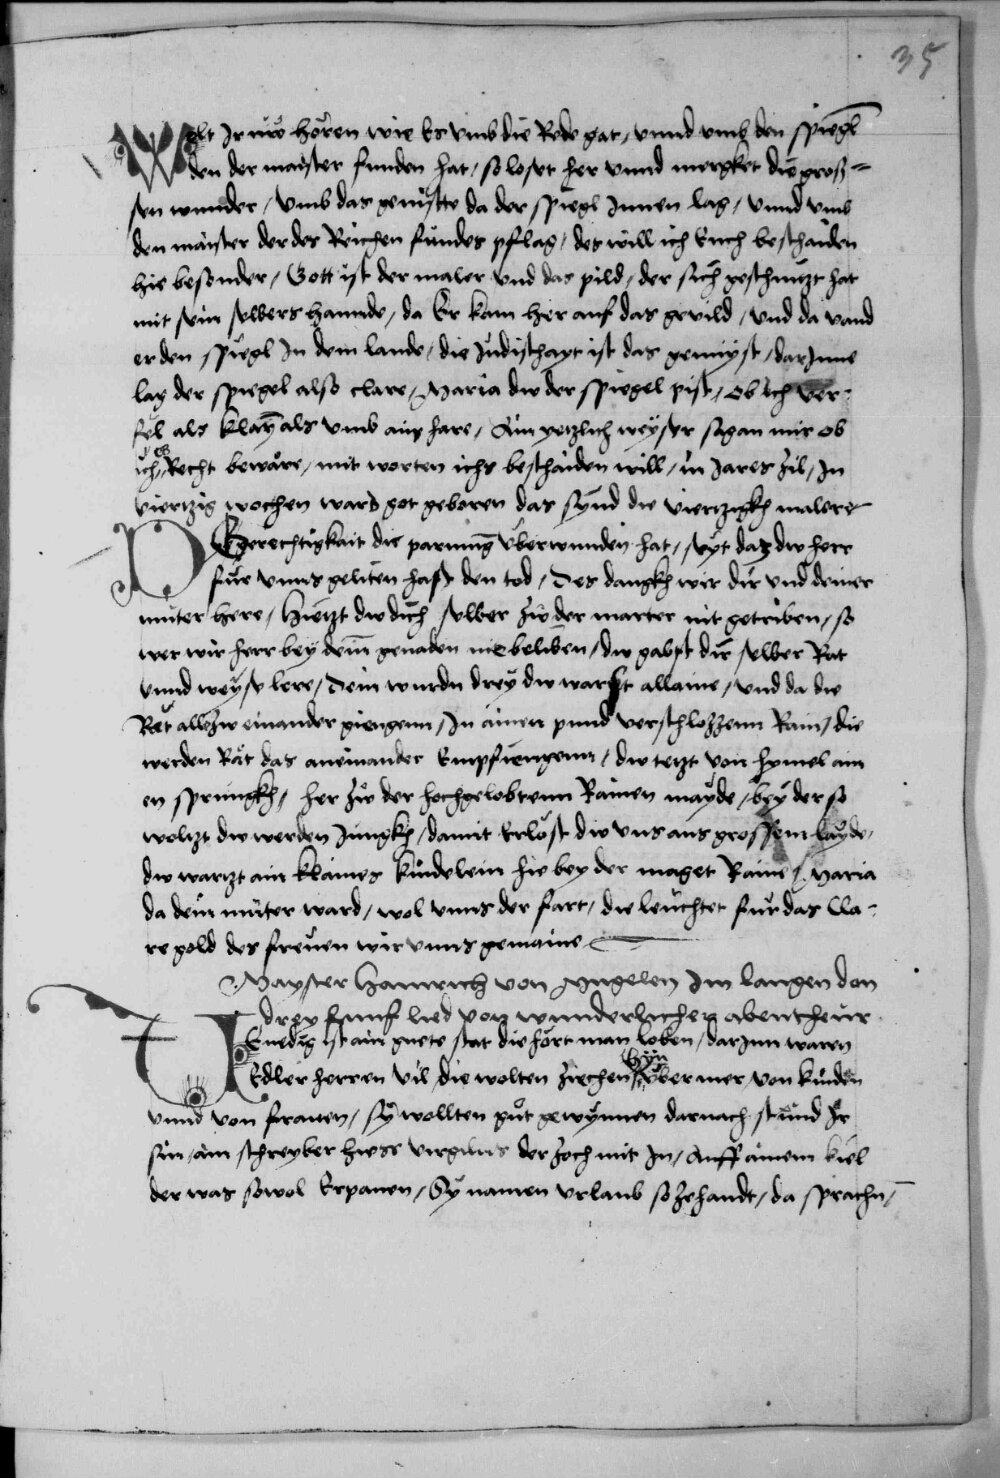 35
Welt Ir nŭ hören wie Es vmb die Rede gat / vnnd vmb den spiegl
den der maister funden hat / so loset her vnnd mergket die gros=
sen wunder / vmb das gemüste da der spiegl Innen lag / vnnd vmb
den maister der des Reichen fundes pflag / des will ich Euch beschaiden
hie besonder / Gott ist der maler vnd das pild / der sich geschmüzt hat
mit sein selbers hannde / da Er kam her auf das gevild / vnd da vand
er den spiegl In dem lande / die Judischayt ist das gemüyst / darInne
lag der spiegel also clare / Maria dw der spiegel pist / ob ich ver-
fel als klayn als vmb ain hare / Ain yetzlich weyser sigan mir ob
ich es Recht beware / mit worten ichs beschaiden will / in Jares zil / In
viertzig wochen ward got geboren das synnd die viertzigkh malere
D Gerechtigkait die parmung vberwunden hat / seyt daz dw herr
für vnns geliten hast den tod / Des dangkh wir dir vnd deiner
mŭter here / Hietzt dw dich selber zŵ der marter nit getriben / so
wer wir herr bey dem̄ genaden nie beliben / dw gabst dir selber Rat
vnnd weyse lere / Dein wurdn drey dw warst allaine / vnd da die
Rät all zw einander giengenn / In ainen pund verschlozzenn Rain / die
werden Rät das aneinander Empfiengenn / dw tetzt von hymel ain
en sprungkh / her zŵ der hochgelobtenn Rainen mayde / bey der so
woltzt dw werden Jungkh / damit Erlöst dw vns aus grossem layde /
dw wartzt ain klaines kindelein hie bey der maget Raine / Maria
da dein mŭter ward / wol vnns der fart / die leüchtet für das Cla-
re gold des freüen wir vnns gemaine
Mayster Hainrich von Mugelen Im langen don
drey funf lied von wunderlichen abentheür
VEnedig ist ain guete stat die hört man loben / darInn waren
Edler herren vil / die wolten ziechen hyn vber mer von kinden
vnnd von frauen / sy wollten gŭt gewynnen darnach stŭnd Ir
sin / ain schreyber hiess virgilius der zoch mit In / Auff ainem kiel
der was so wol Erpauen / Sy namen vrlaub so zehandt / da sprachn̄ /